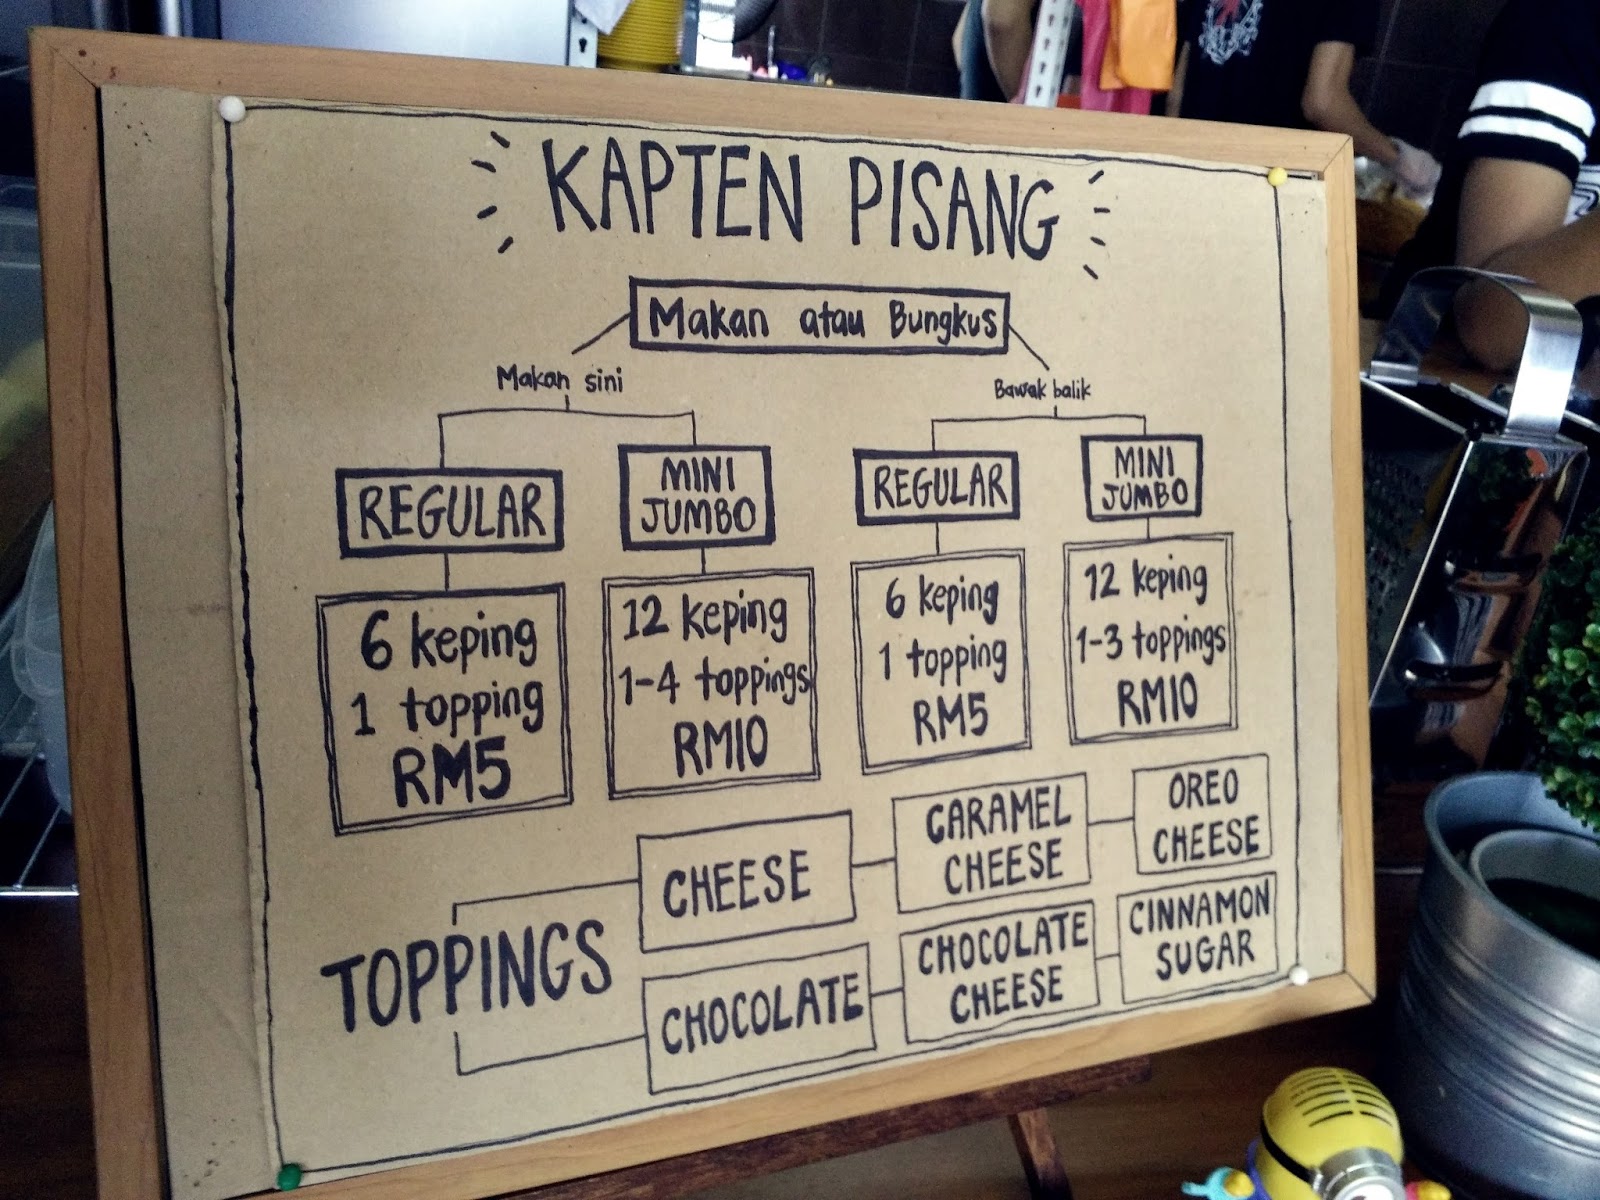 KAPTEN PISANG
Makan atau Bungkus
Makan sini
Bawak balik
REGULAR
6 keping
1 topping
RM5
MINI
JUMBO
12 keping
1-4 toppings
RM10
REGULAR
6 keping
1 topping
RM5
MINI
JUMBO
12 keping
1-3 toppings
RM10
TOPPINGS
CHEESE
CARAMEL
CHEESE
OREO
CHEESE
CHOCOLATE
CHOCOLATE
CHEESE
CINNAMON
SUGAR